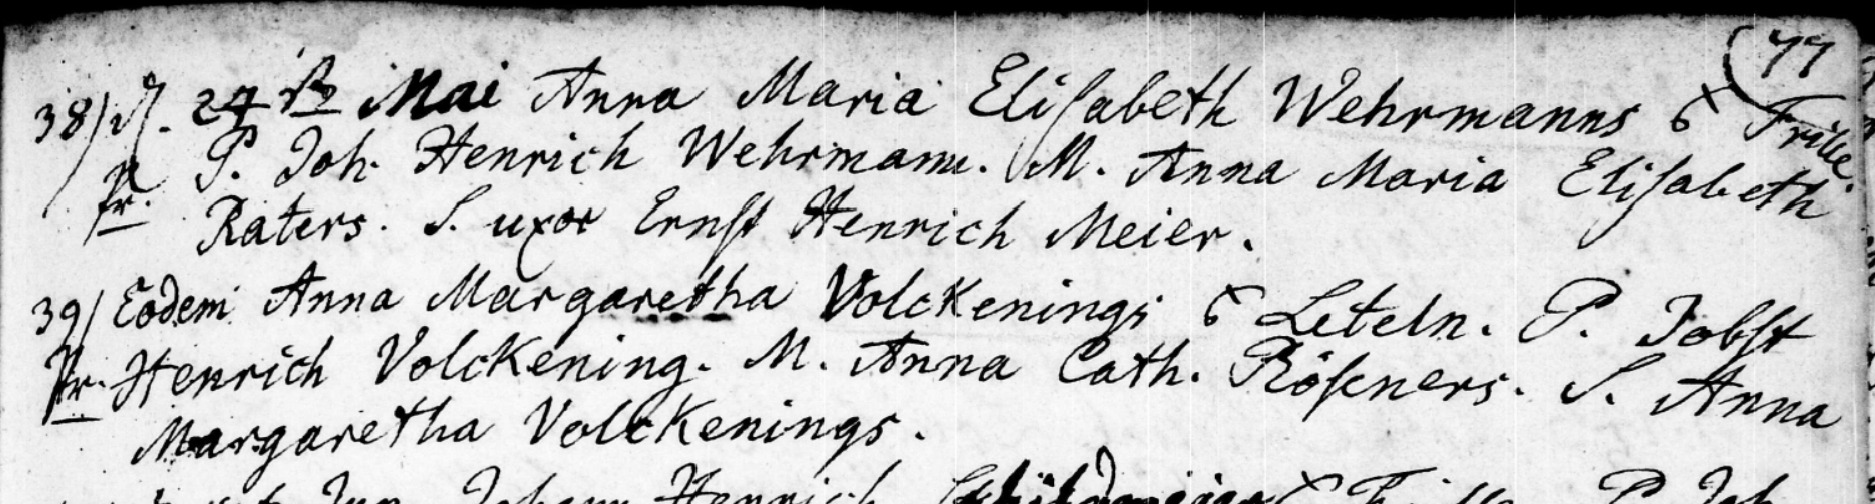 77
38) d. 24 Mai Anna Maria Elisabeth Wehrmanns Frille.
P. Joh. Henrich Wehrmann. M. Anna Maria Elisabeth
fr. Raters. S. uxor Ernst Henrich Meier.
39) Eodem Anna Margaretha Volckenings Leteln. P. Jobst
fr. Henrich Volckening. M. Anna Cath. Röseners. S. Anna
Margaretha Volckenings.
Jun. Johann Henrich P. Joh